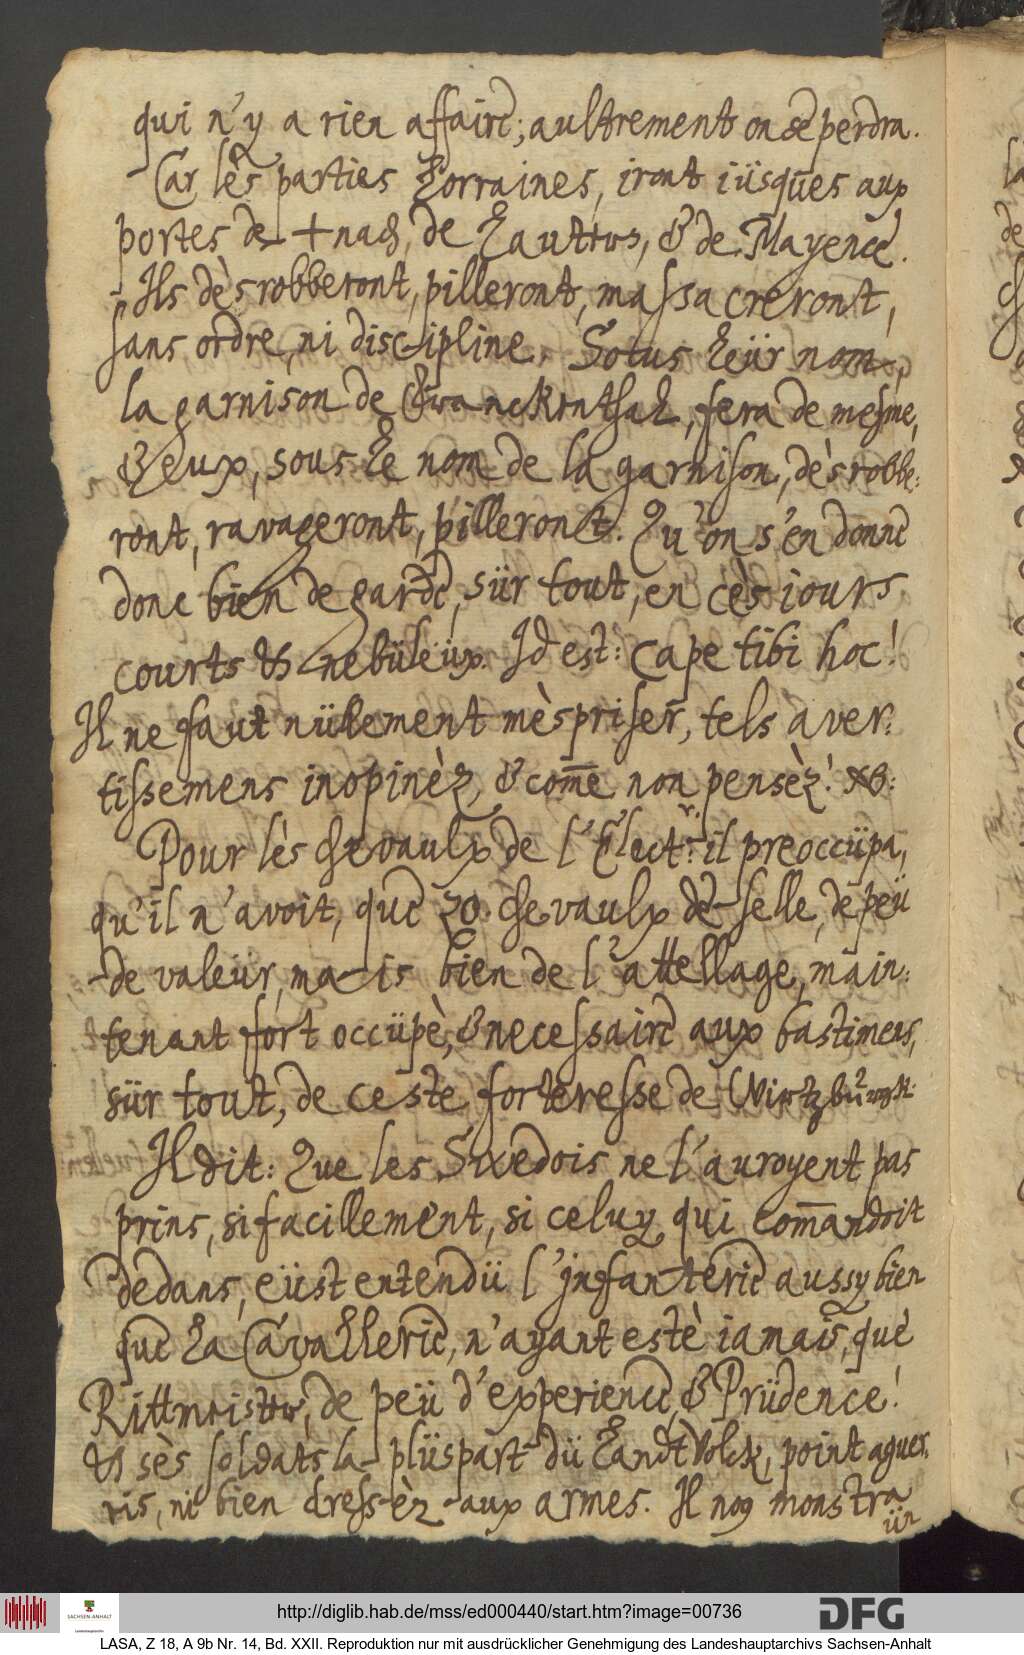 qui n'y a rien affaire; aultrement on se perdra.
Car, lès parties Lorraines, iront iüsques aux
portes de +nach, de Lautern, & de Mayence.
Ils dèsrobberont, pilleront, massacreront,
sans ordre, ni discipline. Soubs leür nom,
la garnison de Franckenthal, fera de mesme,
& eux, sous le nom de la garnison, dèsrobbe-
ront, ravageront, pilleront. Qu'on s'en donne
donc bien de garde, sür tout, en cès iours
courts et nebüleüx. Id est: Cape tibi hoc!
Il ne faut nüllement mèspriser, tels aver-
tissemens inopinèz, & com̄e non pensèz! &c:
Pour lès chevaulx de l'Elect.r: il preoccüpa,
qu'il n'avoit, que 20. chevaulx de selle, de peü
de valeür, mais bien de l'attellage, main-
tenant fort occüpè, & necessaire aux bastimens,
sür tout, de ceste forteresse de Wirtzbürgk.
Il dit: Que les Swedois ne l'auroyent pas
prins, si facillement, si celuy qui com̄andoit
dedans, eüst entendü l'infanterie aussy bien
que la Cavallerie, n'ayant estè iamais, que
Rittmeister, de peü d'experience, & Prüdence!
et sès soldats la plüspart dü Landtvolck, point aguer-
ris, ni bien dressèz aux armes. Il nous monstra
ün
http://diglib.hab.de/mss/ed000440/start.htm?image=00736
DFG
SACHSEN-ANHALT
LASA, Z 18, A 9b Nr. 14, Bd. XXII. Reproduktion nur mit ausdrücklicher Genehmigung des Landeshauptarchivs Sachsen-Anhalt